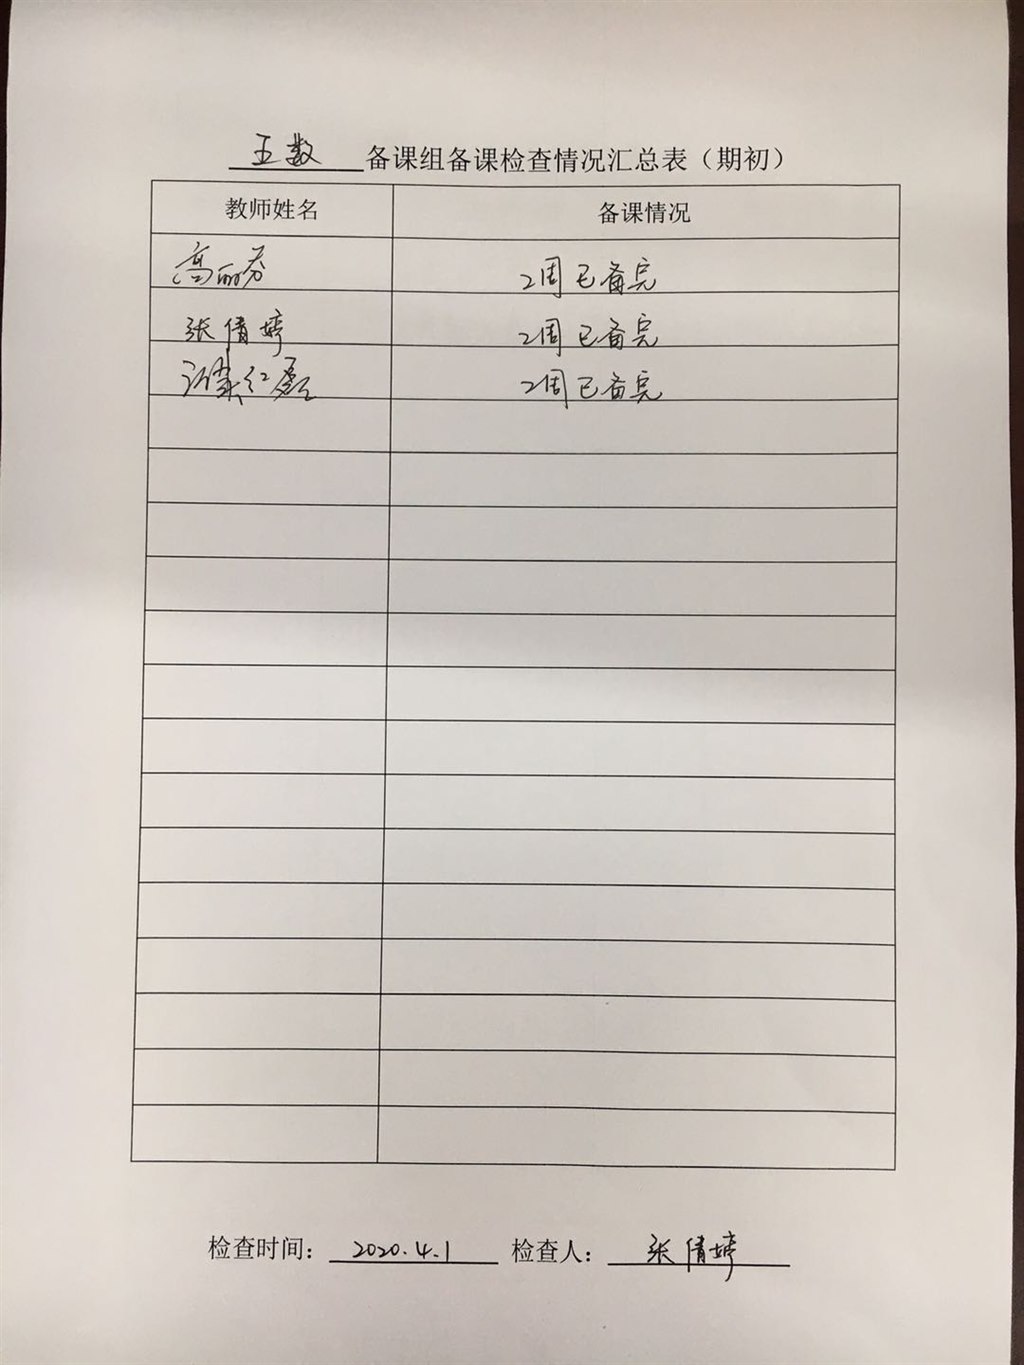 五数 备课组备课检查情况汇总表（期初）
教师姓名 备课情况
高丽芬 2周已备完
张倩婷 2周已备完
红磊 2周已备完
检查时间： 2020.4.1 检查人： 张倩婷